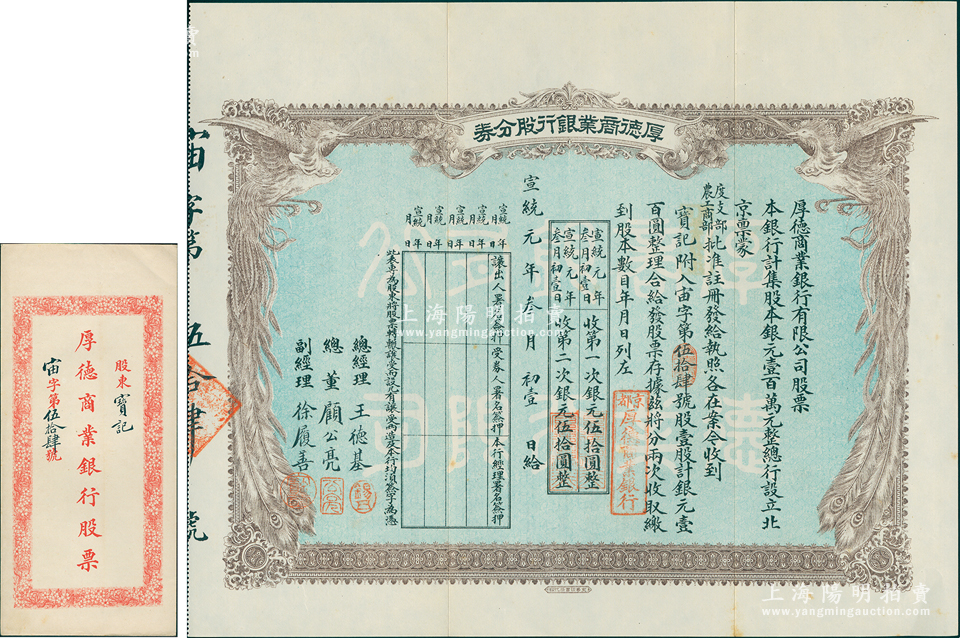 股東 寶記
厚德商業銀行股票
宙字第伍拾肆號
宙字第伍拾肆號
厚德商業銀行股分券
厚德商業銀行有限公司股票
本銀行計集股本銀元壹百萬元整總行設立北
京稟蒙
度支部
農工商部批准註冊發給執照各在案今收到
寶記附入宙字第伍拾肆號股壹股計銀元壹
百圓整理合給發股票存據茲將分兩次收取繳
到股本數目年月日列左
宣統元年叁月初壹日收第一次銀元伍拾圓整
宣統元年叁月初壹日收第二次銀元伍拾圓整
宣統元年叁月初壹日給
讓出人署名簽押 受券人署名簽押 本行經理署名簽押
宣統 年 月 日
宣統 年 月 日
宣統 年 月 日
宣統 年 月 日
宣統 年 月 日
此表專為股東將股票轉輾讓受而設凡有讓受由造及本行均須簽字為憑
總經理 王德基
總董 顧公亮
副經理 徐履善
京都厚德商業銀行
上海陽明拍賣
www.yangmingauction.com
上海陽明拍賣
www.yangmingauction.com